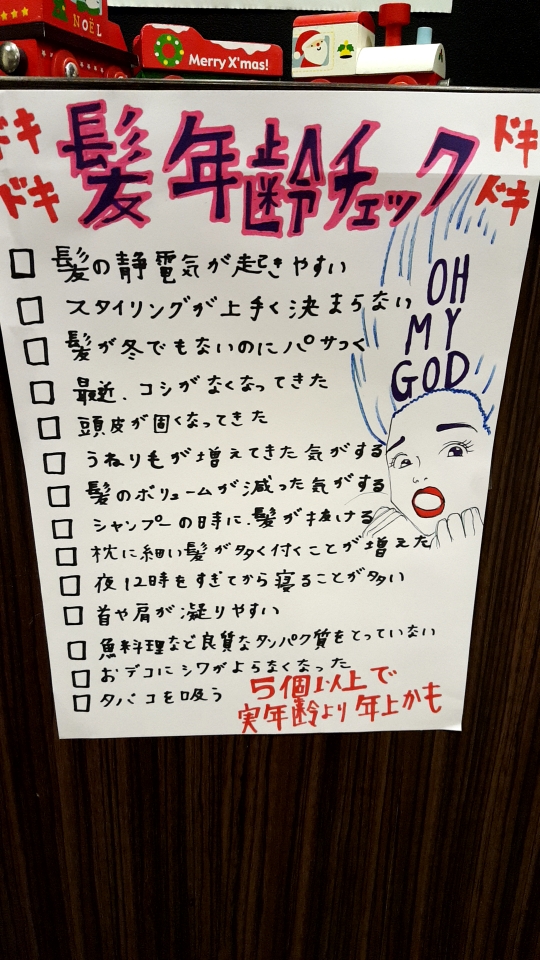 NOËL
Merry X'mas!
ドキ
ドキ
髪年齢チェック
ドキ
ドキ
OH
MY
GOD
□ 髪の静電気が起きやすい
□ スタイリングが上手く決まらない
□ 髪が冬でもないのにパサつく
□ 最近、コシがなくなってきた
□ 頭皮が固くなってきた
□ うねり毛が増えてきた気がする
□ 髪のボリュームが減った気がする
□ シャンプーの時に、髪が抜ける
□ 枕に細い髪が多く付くことが増えた
□ 夜12時をすぎてから寝ることが多い
□ 首や肩が凝りやすい
□ 魚料理など良質なタンパク質をとっていない
□ おデコにシワがよらなくなった
□ タバコを吸う
5個以上で
実年齢より年上かも